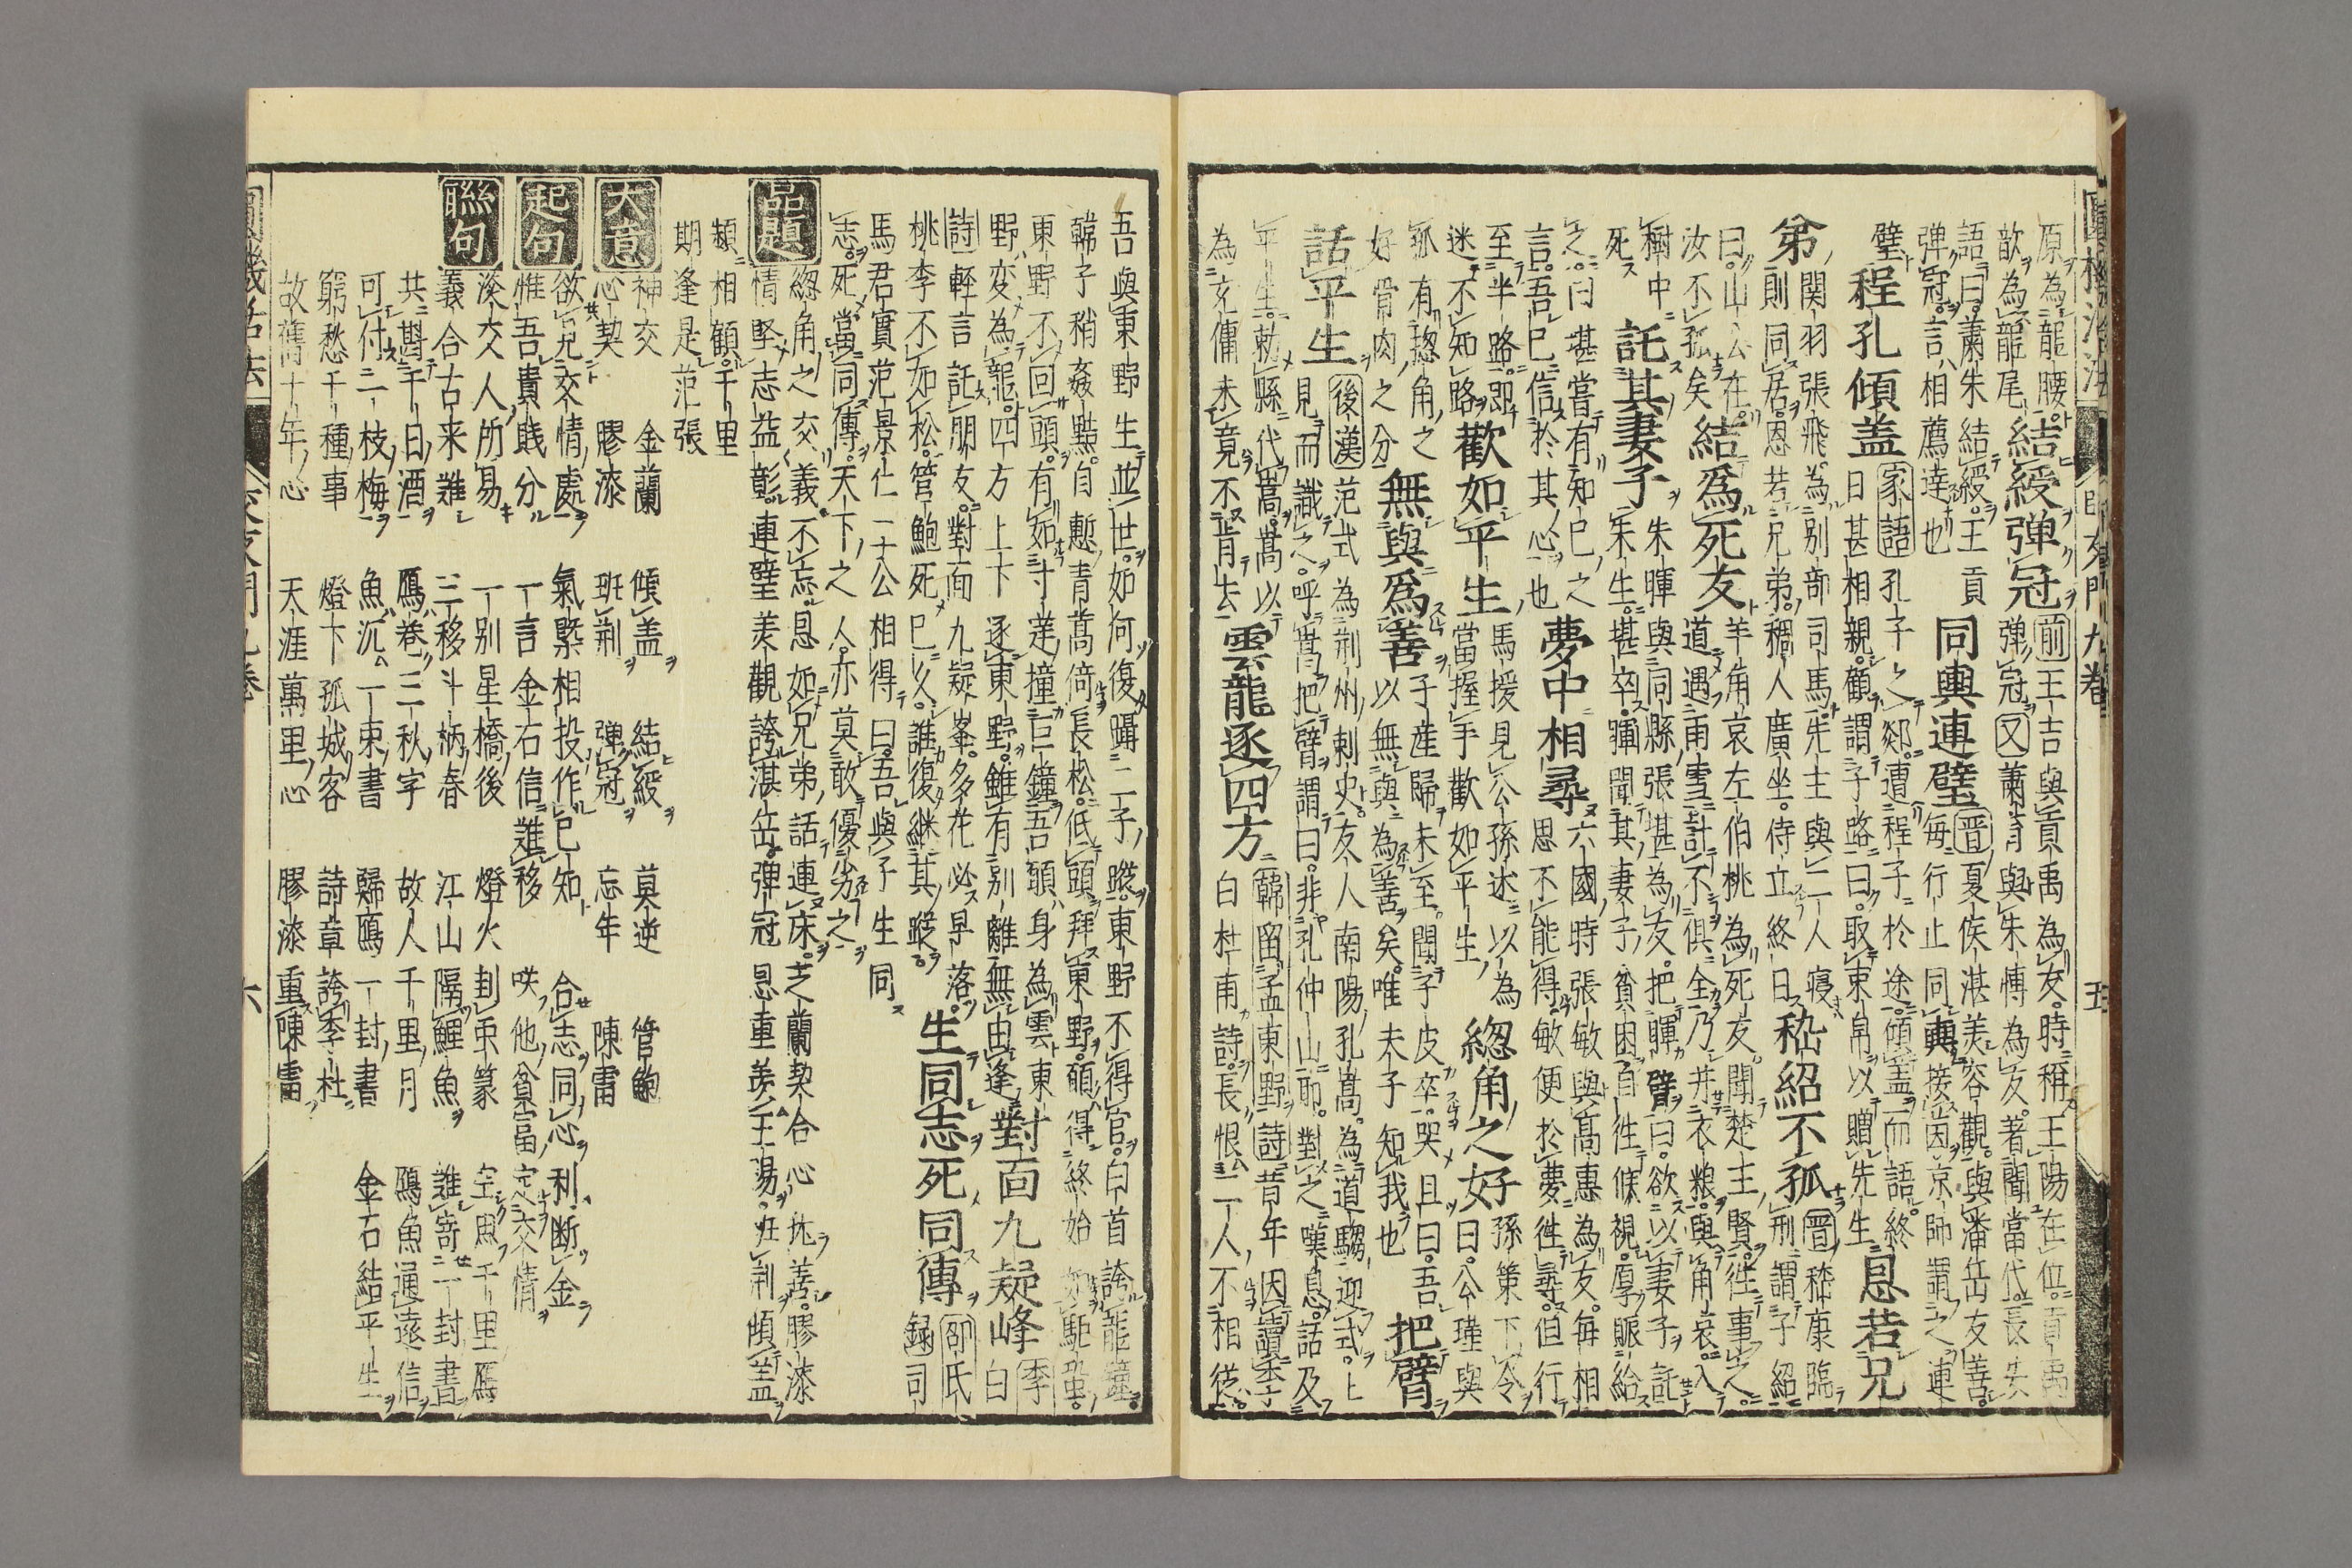 原為龍腰
歆為龍尾結綬彈冠前王吉與貢禹為友時稱王陽在位貢禹
彈冠又蕭育與朱博為友著聞當代長安
語曰蕭朱結綬王貢
彈冠言相薦達也同輿連璧晋夏侯湛美容觀與潘岳友善
每行止同輿接茵京師謂之連
璧程孔傾盖家語孔子之郯遭程子於途傾盖而語終
日甚相親顧謂子路曰取束帛以贈先生恩若兄
弟関羽張飛為別部司馬先主與二人寝
則同居恩若兄弟稠人廣坐侍立終日嵇紹不孤晋嵇康臨
刑謂子紹
曰山公在
汝不孤矣結為死友羊角哀左伯桃為死友聞楚王賢徃事之
道遇雨雪計不俱全乃并衣粮與角哀入
樹中
死託其妻子朱暉與同縣張堪為友把暉臂曰欲以妻子託
朱生堪卒暉聞其妻子貧困自徃候視厚賑給
之曰堪嘗有知己之
言吾已信於其心也夢中相尋六國時張敏與高惠為友每相
思不能得敏便於夢徃尋但行
至半路即
迷不知路歡如平生馬援見公孫述以為
當握手歡如平生總角之好孫策下令
曰公瑾與
孤有揔角之
好骨肉之分無與為善子産歸未至聞子皮卒哭且曰吾
以無與為善矣唯夫子知我也把臂
話平生後漢范式為荆州刺史友人南陽孔嵩為道騶迎式上
見而識之呼嵩把臂謂曰非孔仲山耶對之嘆息話及
平生勅縣代嵩嵩以
為友傭未竟不肯去雲龍逐四方韓留孟東野詩昔年因讀李
白杜甫詩長恨二人不相從
吾與東野生並世如何復躡二子蹤東野不得官白首誇龍鐘
韓子稍姦黠自慙青蒿倚長松低頭拜東野願得終始如駏蛩
東野不回頭有如寸莛撞巨鐘吾願身為雲東
野変為龍四方上下逐東野雖有別離無由逢對面九疑峰李
白
詩輕言託朋友對面九疑峯多花必早落
桃李不如松管鮑死已久誰復継其蹤生同志死同傳邵氏
録司
馬君實范景仁二公相得曰吾與子生同
志死當同傳天下之人亦莫敢優劣之
品題
總角之交義不忘恩如兄弟話連床芝蘭契合心抗善膠漆
情堅志益彰連璧羡觀誇湛岳彈冠恩重羡王陽班荆傾盖
頻相顧千里
期逢是范張
大意
神交 金蘭 傾盖 結綬 莫逆 管鮑
心契 膠漆 班荆 彈冠 忘年 陳雷
起句
欲見交情處 氣槩相投作已知 合志同心利断金
惟吾貴賎分 一言金石信難移 咲他貧富定交情
聯句
深交人所易 一別星橋後 燈火封示篆 空思千里雁
義合古来難 三移斗柄春 江山隔鯉魚 誰寄一封書
共斟千日酒 鴈巻三秋字 故人千里月 鴈魚通遠信
可付一枝梅 魚沉一束書 歸鴈一封書 金石結平生
窮愁千種事 燈下孤城客 詩章誇李杜
故舊十年心 天涯萬里心 膠漆重陳雷